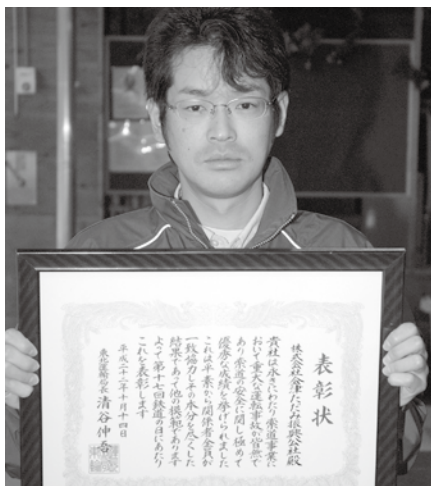 表彰状
株式会社会津ただみ振興公社殿
貴社は永きにわたり索道事業に
おいて重大な運転事故が皆無で
あり索道の安全に関し極めて
優秀な成績を挙げられました
これは平素から関係者全員が
一致協力しその本分を尽くした
結果であって他の模範であります
よって第十七回鉄道の日にあたり
これを表彰します
平成二十二年十月十四日
東北運輸局長 清谷伸吾